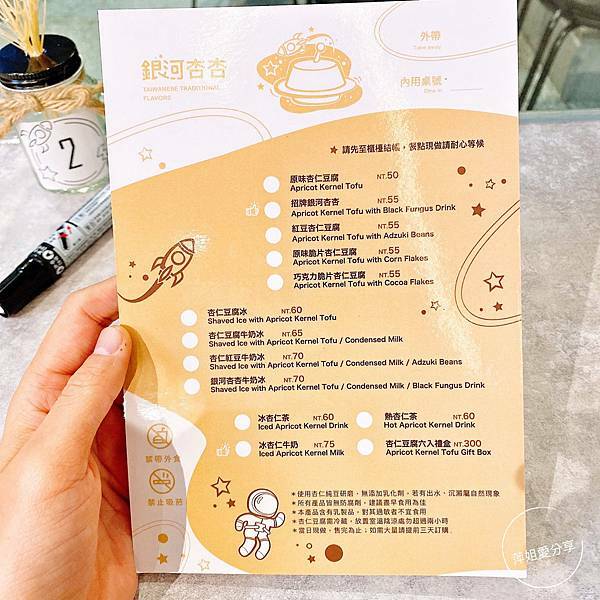 銀河杏杏
TAIWANESE TRADITIONAL
FLAVORS
外帶
Take away
內用桌號
Dine in
2
★ 請先至櫃檯結帳，餐點現做請耐心等候
原味杏仁豆腐 NT.50
Apricot Kernel Tofu
招牌銀河杏杏 NT.55
Apricot Kernel Tofu with Black Fungus Drink
紅豆杏仁豆腐 NT.55
Apricot Kernel Tofu with Adzuki Beans
原味脆片杏仁豆腐 NT.55
Apricot Kernel Tofu with Corn Flakes
巧克力脆片杏仁豆腐 NT.55
Apricot Kernel Tofu with Cocoa Flakes
杏仁豆腐冰 NT.60
Shaved Ice with Apricot Kernel Tofu
杏仁豆腐牛奶冰 NT.65
Shaved Ice with Apricot Kernel Tofu / Condensed Milk
杏仁紅豆牛奶冰 NT.70
Shaved Ice with Apricot Kernel Tofu / Condensed Milk / Adzuki Beans
銀河杏杏牛奶冰 NT.70
Shaved Ice with Apricot Kernel Tofu / Condensed Milk / Black Fungus Drink
冰杏仁茶 NT.60
Iced Apricot Kernel Drink
熱杏仁茶 NT.60
Hot Apricot Kernel Drink
冰杏仁牛奶 NT.75
Iced Apricot Kernel Milk
杏仁豆腐六入禮盒 NT.300
Apricot Kernel Tofu Gift Box
禁帶外食
禁止吸菸
＊使用杏仁純豆研磨，無添加乳化劑，若有出水、沉澱屬自然現象
＊所有產品皆無防腐劑，建議盡早食用為佳
＊本產品含有乳製品，對其過敏者不宜食用
＊杏仁豆腐需冷藏，放置室溫陰涼處勿超過兩小時
＊當日現做，售完為止；如需大量請提前三天訂購
萍姐愛分享